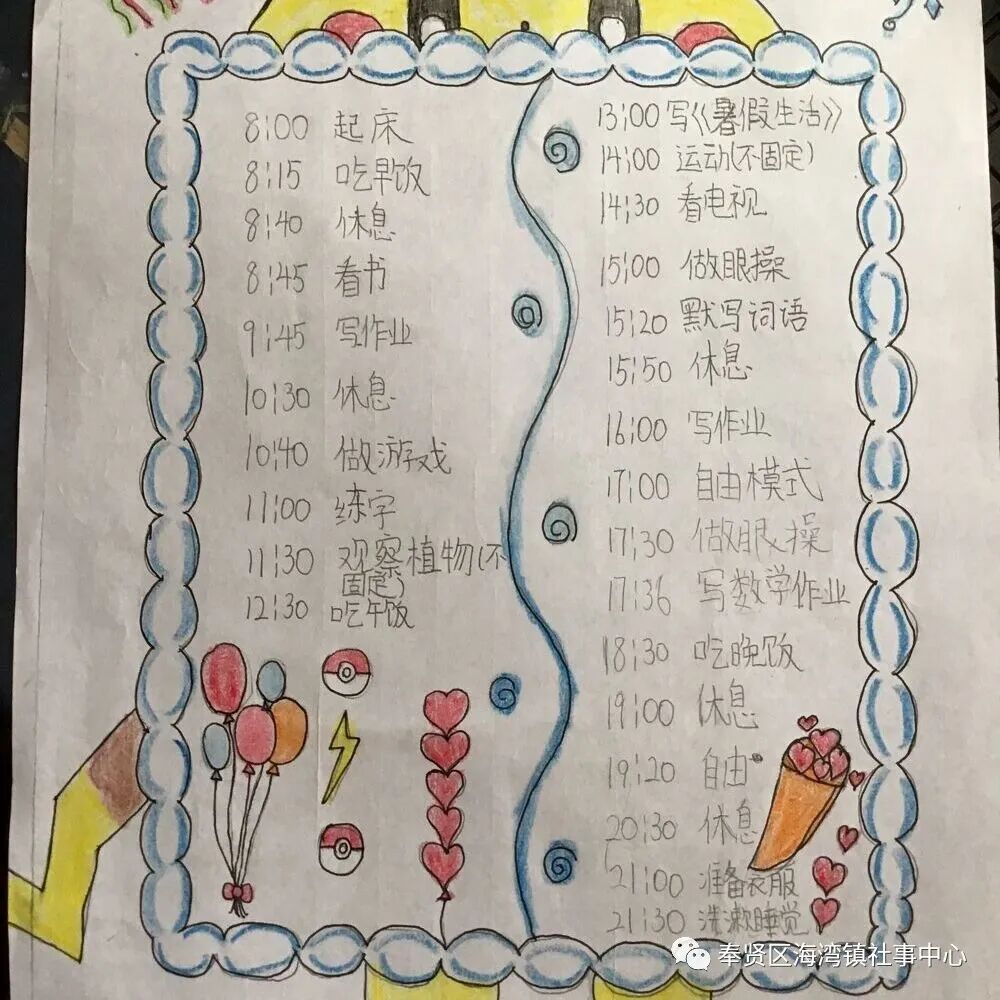 8:00 起床
8:15 吃早饭
8:40 休息
8:45 看书
9:45 写作业
10:30 休息
10:40 做游戏
11:00 练字
11:30 观察植物(不
固定)
12:30 吃午饭
13:00 写《暑假生活》
14:00 运动(不固定)
14:30 看电视
15:00 做眼操
15:20 默写词语
15:50 休息
16:00 写作业
17:00 自由模式
17:30 做眼操
17:36 写数学作业
18:30 吃晚饭
19:00 休息
19:20 自由
20:30 休息
21:00 准备衣服
21:30 洗漱睡觉
奉贤区海湾镇社事中心